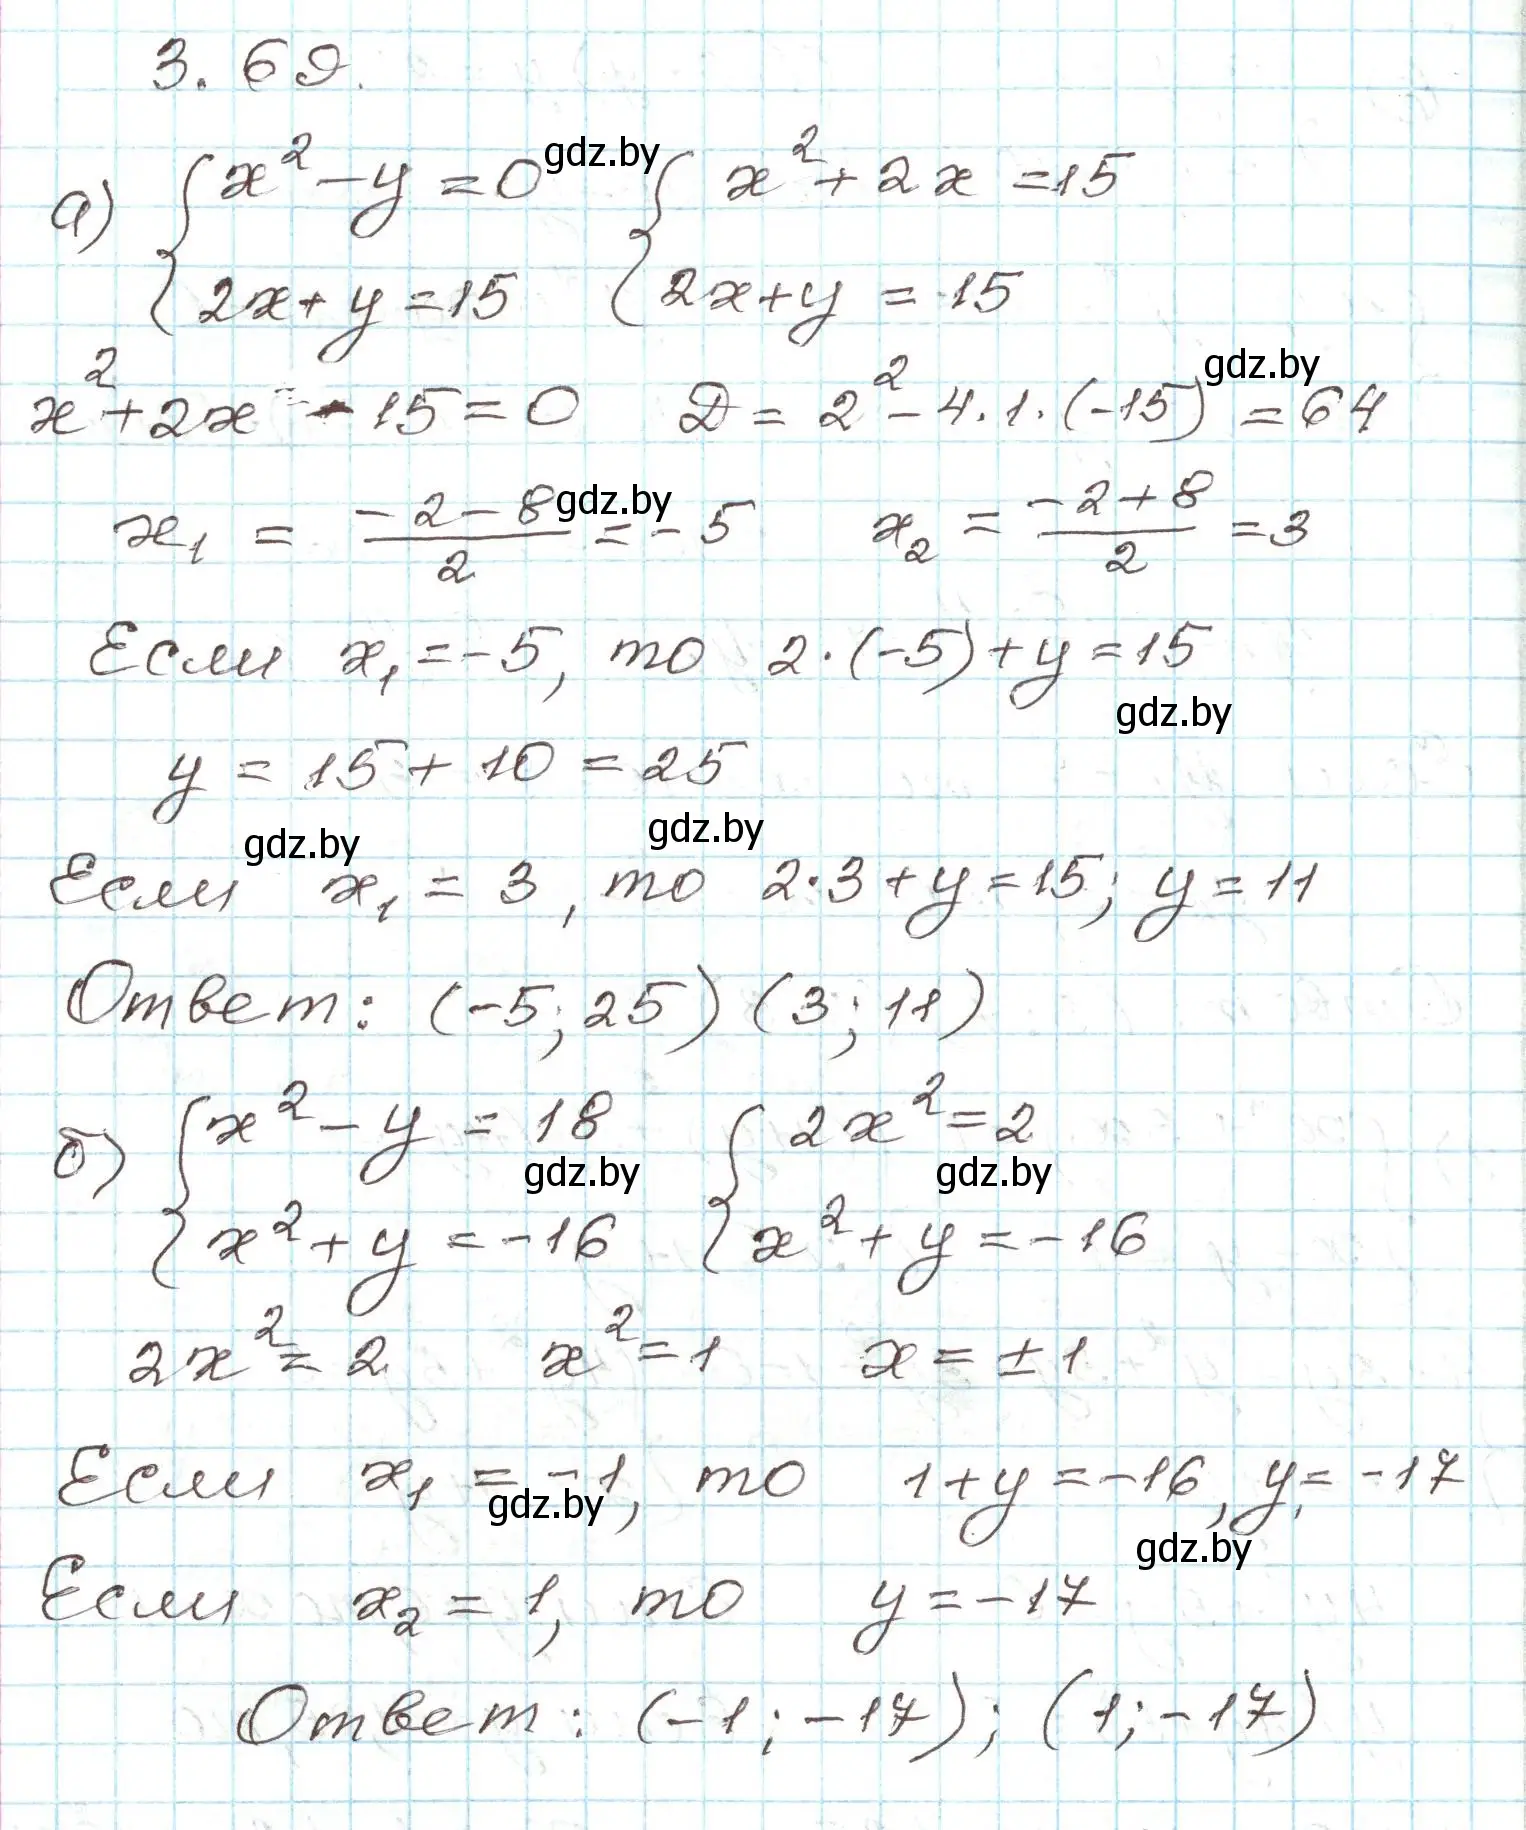 3.69.
а) { x² - y = 0 gdz.by { x² + 2x = 15
2x + y = 15 2x + y = 15
gdz.by
x² + 2x - 15 = 0 D = 2² - 4·1·(-15) = 64
x₁ = (-2 - 8)/2 = -5 x₂ = (-2 + 8)/2 = 3
gdz.by
Если x₁ = -5, то 2·(-5) + y = 15
gdz.by
y = 15 + 10 = 25
gdz.by gdz.by
Если x₁ = 3, то 2·3 + y = 15; y = 11
Ответ: (-5; 25) (3; 11)
б) { x² - y = 18 { 2x² = 2
gdz.by gdz.by
x² + y = -16 x² + y = -16
2x² = 2 x² = 1 x = ±1
Если x₁ = -1, то 1 + y = -16, y = -17
gdz.by
gdz.by
Если x₂ = 1, то y = -17
Ответ: (-1; -17); (1; -17)